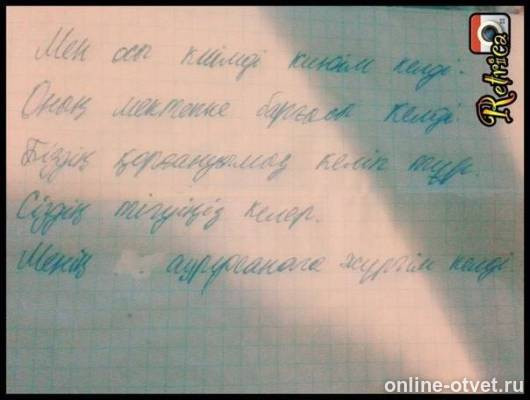 Мен осы киімді кигім келді.
Оның мектепке барғысы келді.
Біздің қорғанымыз келіп тұр.
Сіздің тігіңіз келер.
Менің ауруханаға жүргім келді
Retrica
online-otvet.ru